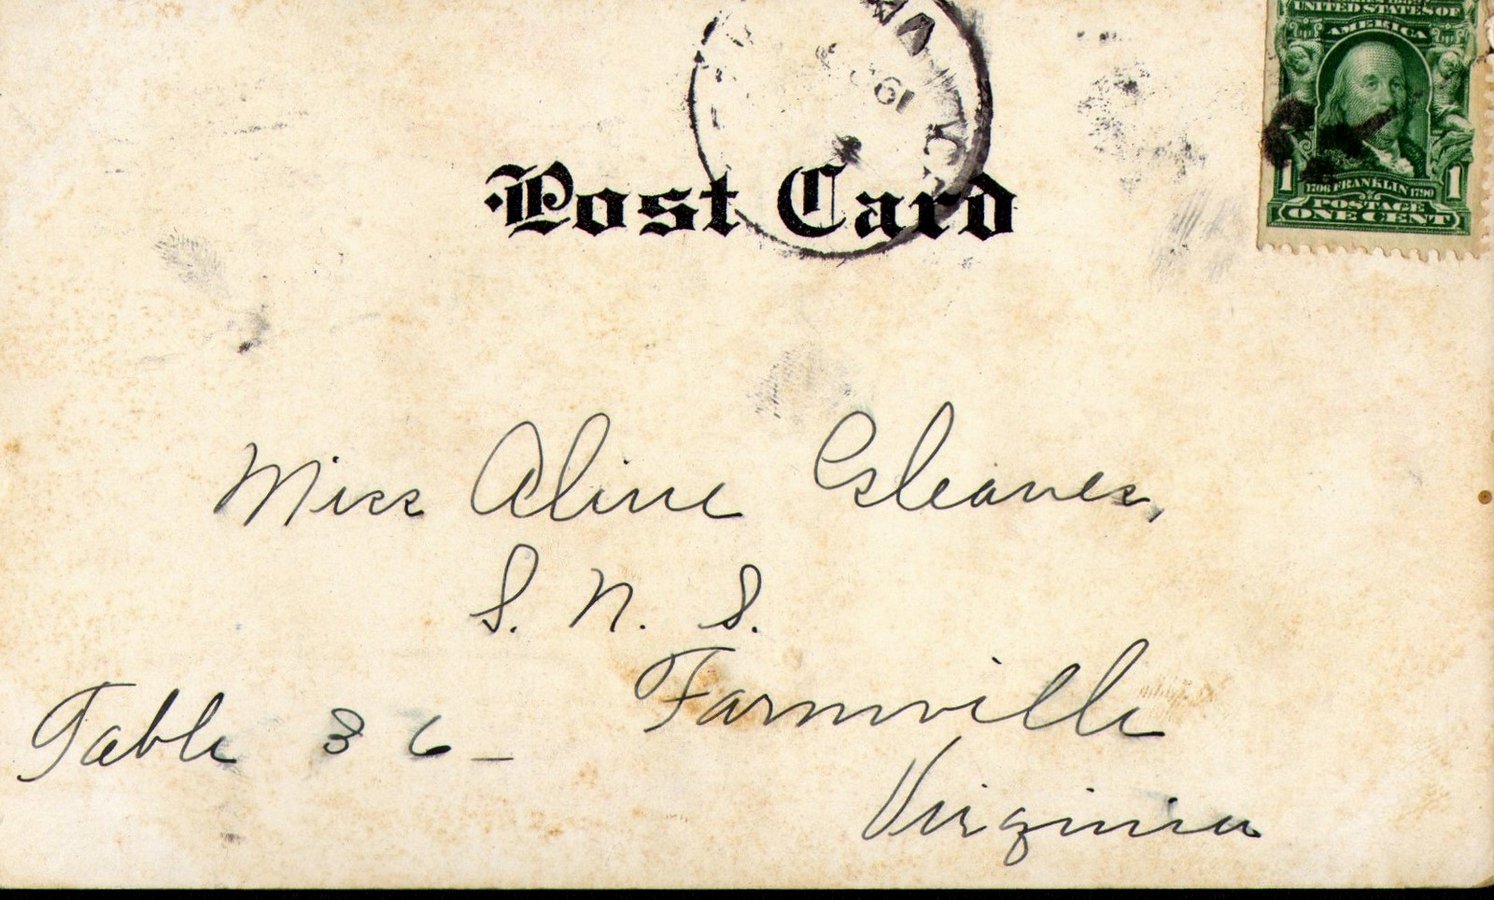 UNITED STATES OF
AMERICA
1 1706 FRANKLIN 1790 1
POSTAGE
ONE CENT
VA
Post Card
Miss Aline Gleaves,
S. N. S.
Farmville
Virginia
Table 36 -